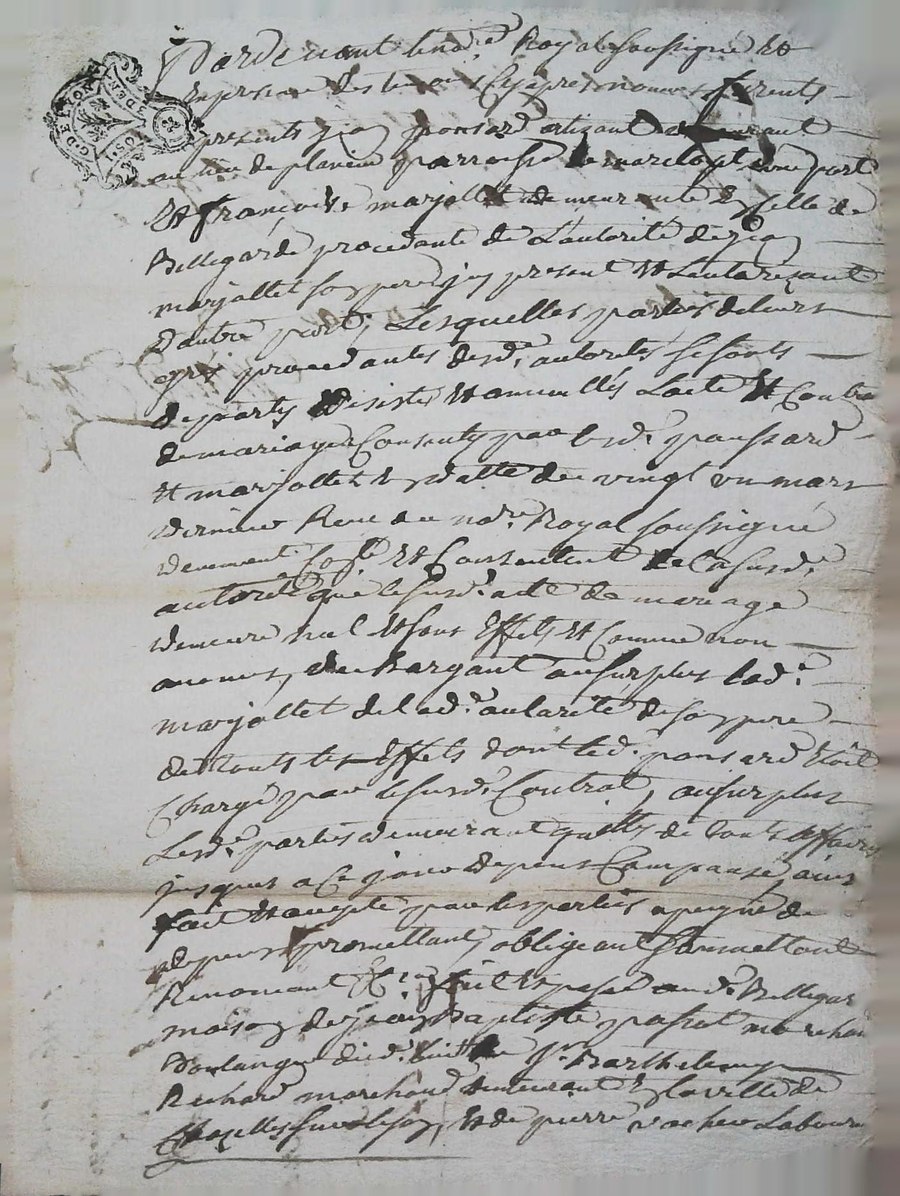 G. DE LYON
2 SOLS
Pardevant le no.re Royal soussigné Et
En presence des temoins Cy apres nommes furents
presents Jean ponsard artizant demeurant
au lieu de planein parroisse de marclopt d'une part
Et françoise marjollet demeurante En celle de
Bellegarde procedante de L'autorité de Jean
marjollet son pere Icy present Et Lautorizant
d'autre part, Lesquelles parties de leurs
gréz procedantes desd.s autorités se sonts
departy desistes Et annullés Lacte Et Contra
de mariage Consenty par led. ponsard
Et marjollet En datte du vingt un mars
dernier Receu du no.re Royal soussigné
duement Et Consentent de la susd.
autorité que le susd. acte de mariage
demeure nul Et sans Effets Et Comme non
auenus, dechargant au surplus lad.
marjollet de lad. autorité de son pere
de touts les Effets dont led. ponsard Etoit
Chargé par le susd. Contrat, au surplus
Lesd. parties demeurant quittes de touts affaires
jusques a Ce jour depens Compansé, ains
fait Et accepté par les parties a peyne de
depens promettant, obligeant soumettant
Renoncant fait Et passé aud. Bellegar
maison de Jean Baptiste marchan
Boulanger dud. lieu S.r Barthelemy
Richard marchand demeurant En la ville de
Chazelles sur Lyon, Et de pierre vacher Laboure